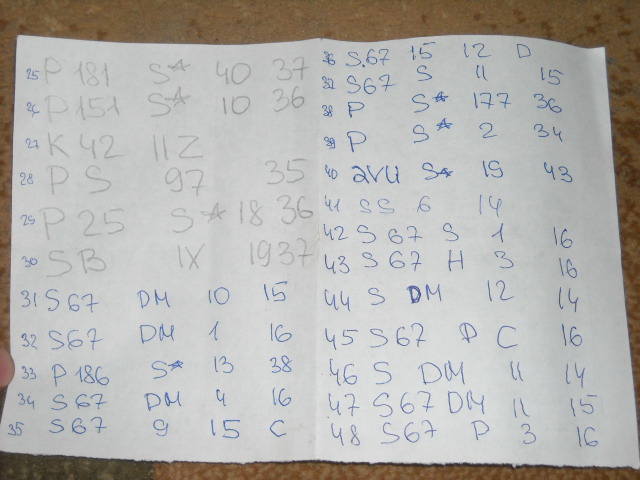 25 P 181 S* 40 37
26 P 151 S* 10 36
27 K 42 11 Z
28 P S 97 35
29 P 25 S* 18 36
30 SB IX 1937
31 S 67 DM 10 15
32 S67 DM 1 16
33 P 186 S* 13 38
34 S 67 DM 4 16
35 S 67 9 15 C
36 S.67 15 12 D
37 S67 S 11 15
38 P S* 177 36
39 P S* 2 34
40 avu S* 19 43
41 SS 6 14
42 S 67 S 1 16
43 S 67 H 3 16
44 S DM 12 14
45 S 67 D C 16
46 S DM 11 14
47 S 67 DM 11 15
48 S67 P 3 16